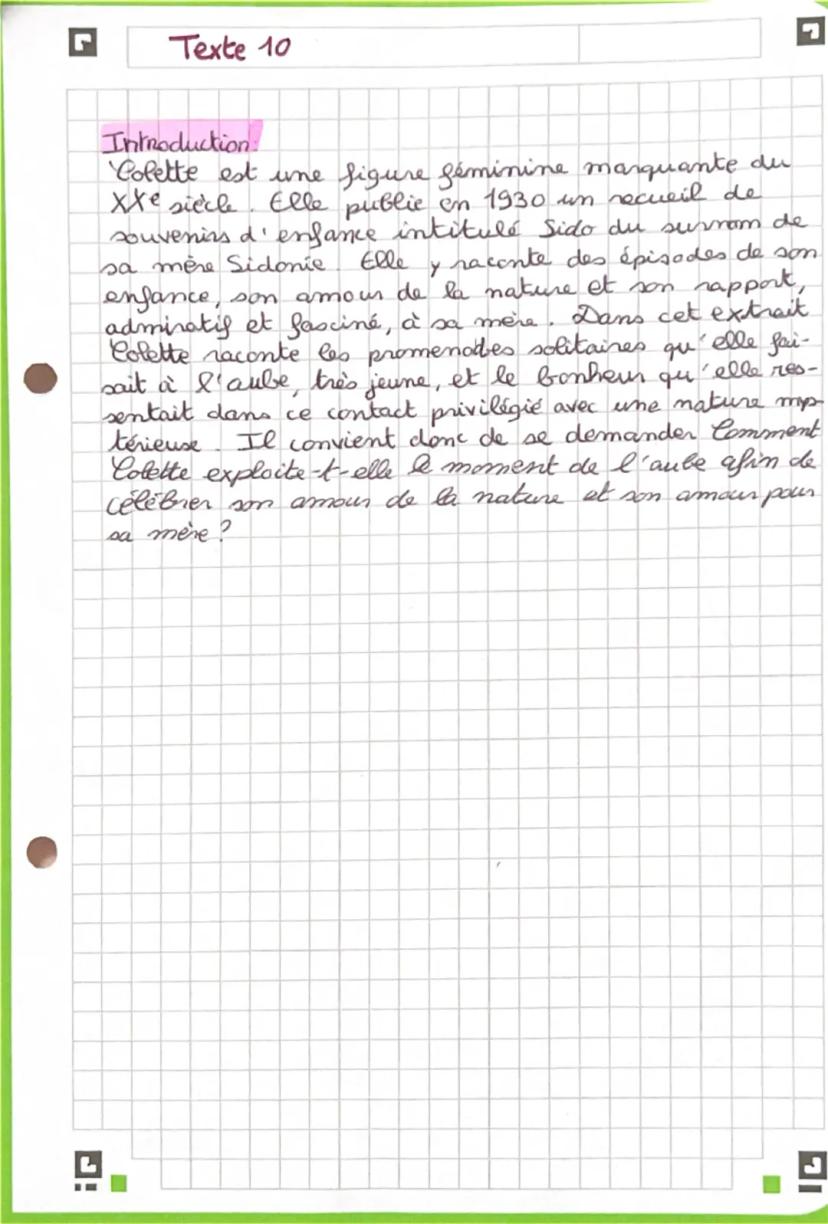 Texte 10
Introduction:
Colette est une figure féminine marquante du
XXe siècle. Elle publie en 1930 un recueil de
souvenirs d'enfance intitulé Sido du surnom de
sa mère Sidonie. Elle y raconte des épisodes de son
enfance, son amour de la nature et son rapport,
admiratif et fasciné, à sa mère. Dans cet extrait
Colette raconte les promenades solitaires qu'elle fai-
sait à l'aube, très jeune, et le bonheur qu'elle res-
sentait dans ce contact privilégié avec une nature mys-
térieuse. Il convient donc de se demander Comment
Colette exploite-t-elle le moment de l'aube afin de
célébrer son amour de la nature et son amour pour
sa mère ?